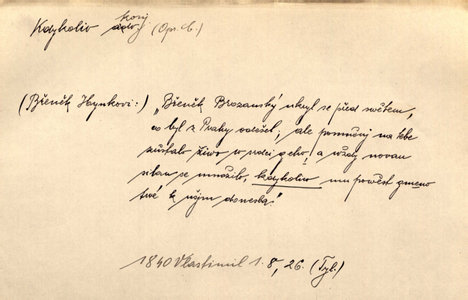 Kdykoliv (Opr. č.)
(Břeněk Hynkovi:) „Břeněk Brozanský ukryl se před světem,
co byl z Prahy odešel, ale pomněný na tebe
zůstalo živo v srdci jeho, a vždy novou
silou se množilo, kdykoliv mu pověst jmeno
tvé k uším donesla.“
1840 Vlastimil 1. 8, 26. (Tyl.)